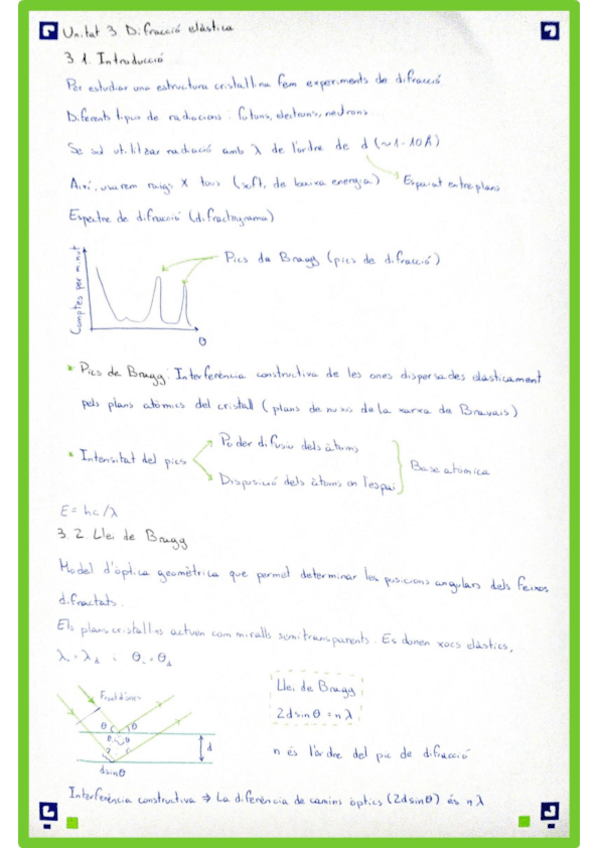 Unitat 3 Difracció elàstica
3.1. Introducció
Per estudiar una estructura cristal·lina fem experiments de difracció
Diferents tipus de radiacions: fotons, electrons, neutrons.
Se sol utilitzar radiació amb λ de l'ordre de d (~1-10Å)
Així, usarem raigs X tous (soft, de baixa energia) Espaiat entre plans
Espectre de difracció (difractograma)
Pics de Bragg (pics de difracció)
Comptes per minut
θ
Pics de Bragg: Interferència constructiva de les ones dispersades elàsticament
pels plans atòmics del cristall (plans de nusos de la xarxa de Bravais)
Poder difusiu dels àtoms
Intensitat del pics
Base atòmica
Disposició dels àtoms en l'espai
E = hc/λ
3.2. Llei de Bragg
Model d'òptica geomètrica que permet determinar les posicions angulars dels feixos
difractats.
Els plans cristal·lins actuen com miralls semitransparents. Es donen xocs elàstics,
λi = λd i θi = θd
Front d'ones
Llei de Bragg
2dsinθ = nλ
θ θ
d
n és l'ordre del pic de difracció
dsinθ
Interferència constructiva ⇒ La diferència de camins òptics (2dsinθ) és nλ